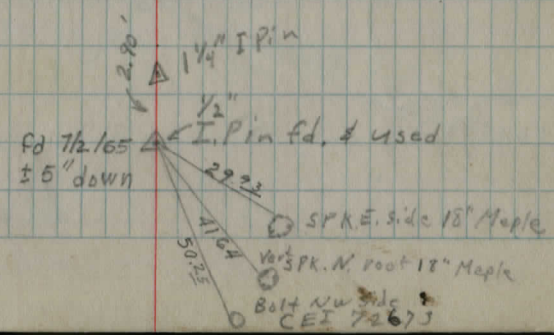 2.90'
1 1/4" I Pin
1/2"
I. Pin fd. & used
fd 7/2/65
± 5" down
29.93
SPK E. side 18" Maple
41.64
SPK. N. root 18" Maple
50.25
Bolt NW side
CEI 72673